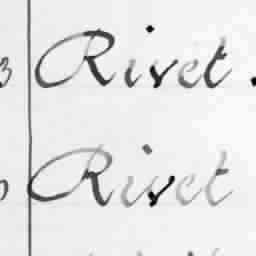 Rivet.
Rivet